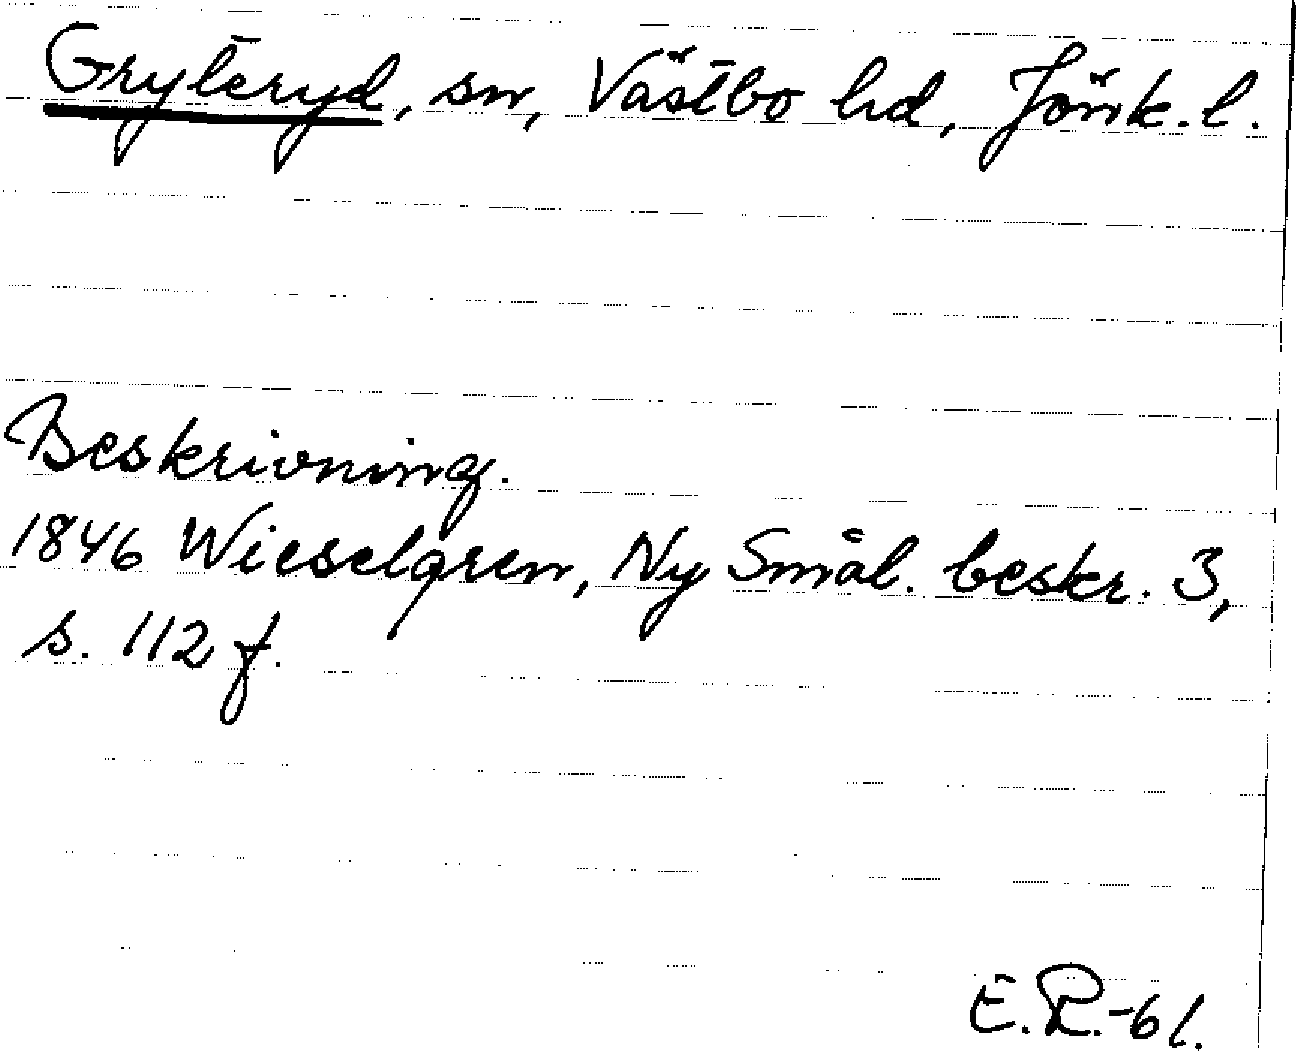 Gryteryd, sn, Västbo hd, Jönk. l.
Beskrivning.
1846 Wieselgren, Ny Smål. beskr. 3,
s. 112 f.
E.R.-61.